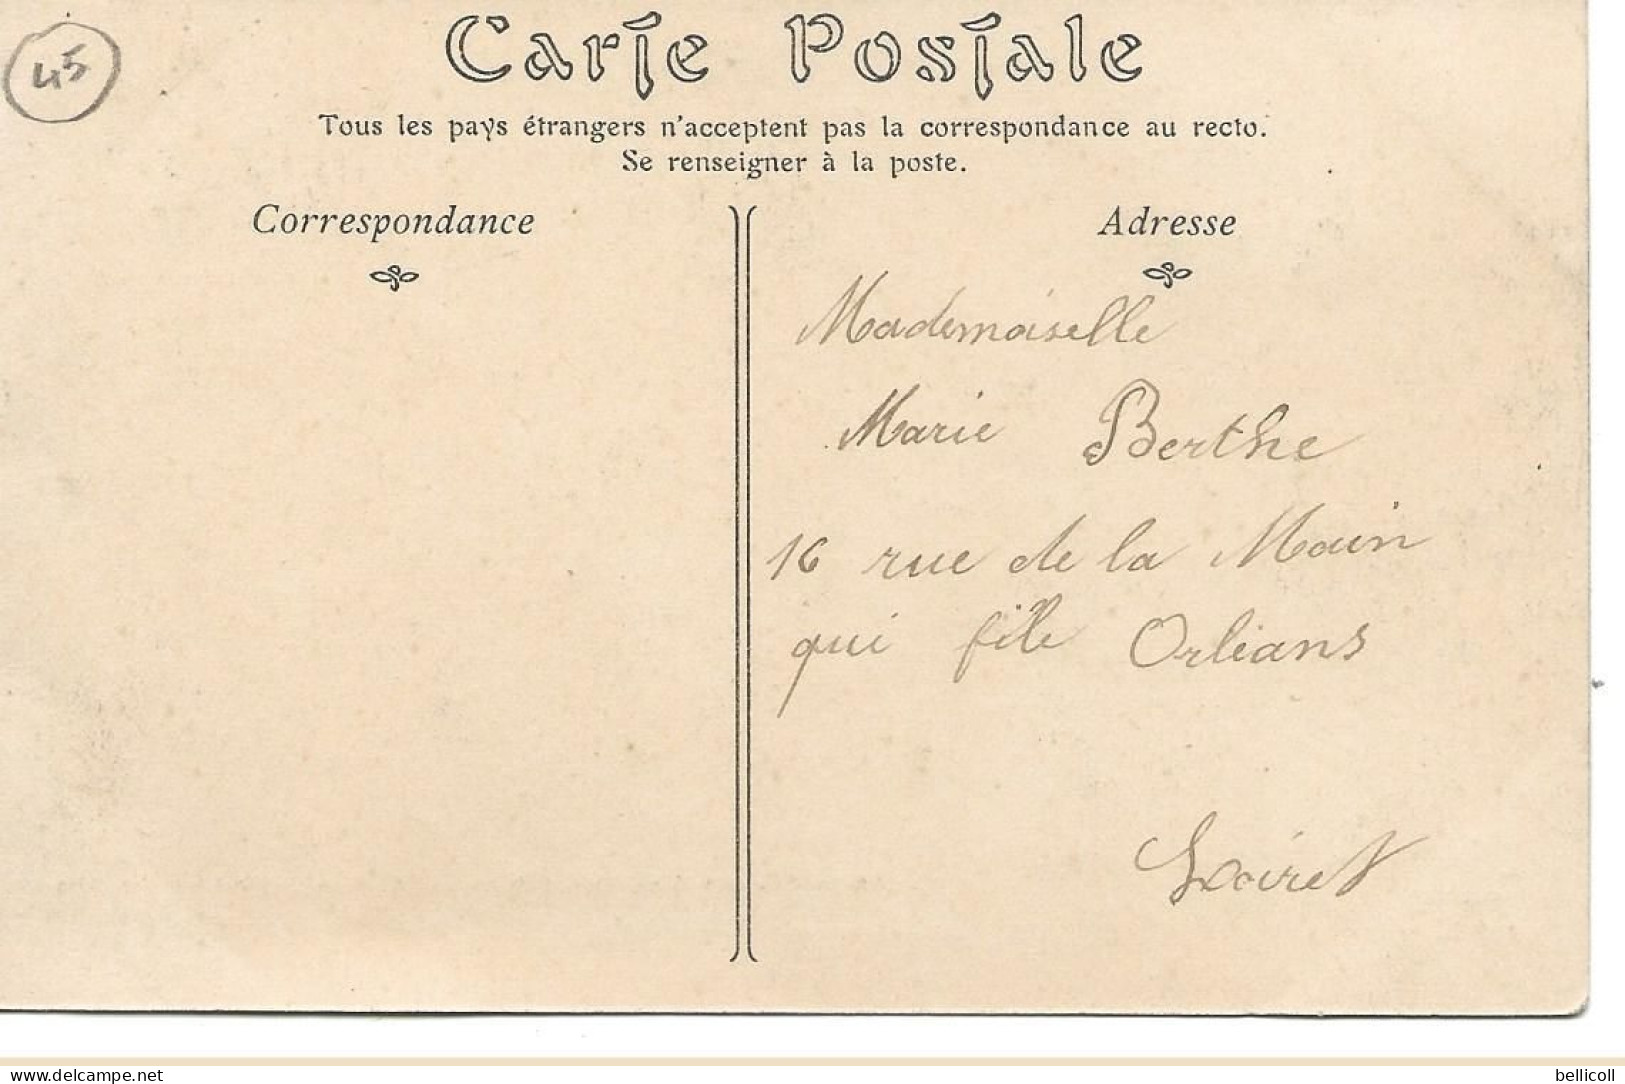 45
Carte Postale
Tous les pays étrangers n'acceptent pas la correspondance au recto.
Se renseigner à la poste.
Correspondance
Adresse
Mademoiselle
Marie Berthe
16 rue de la Main
qui file Orléans
Loiret
www.delcampe.net
bellicoll